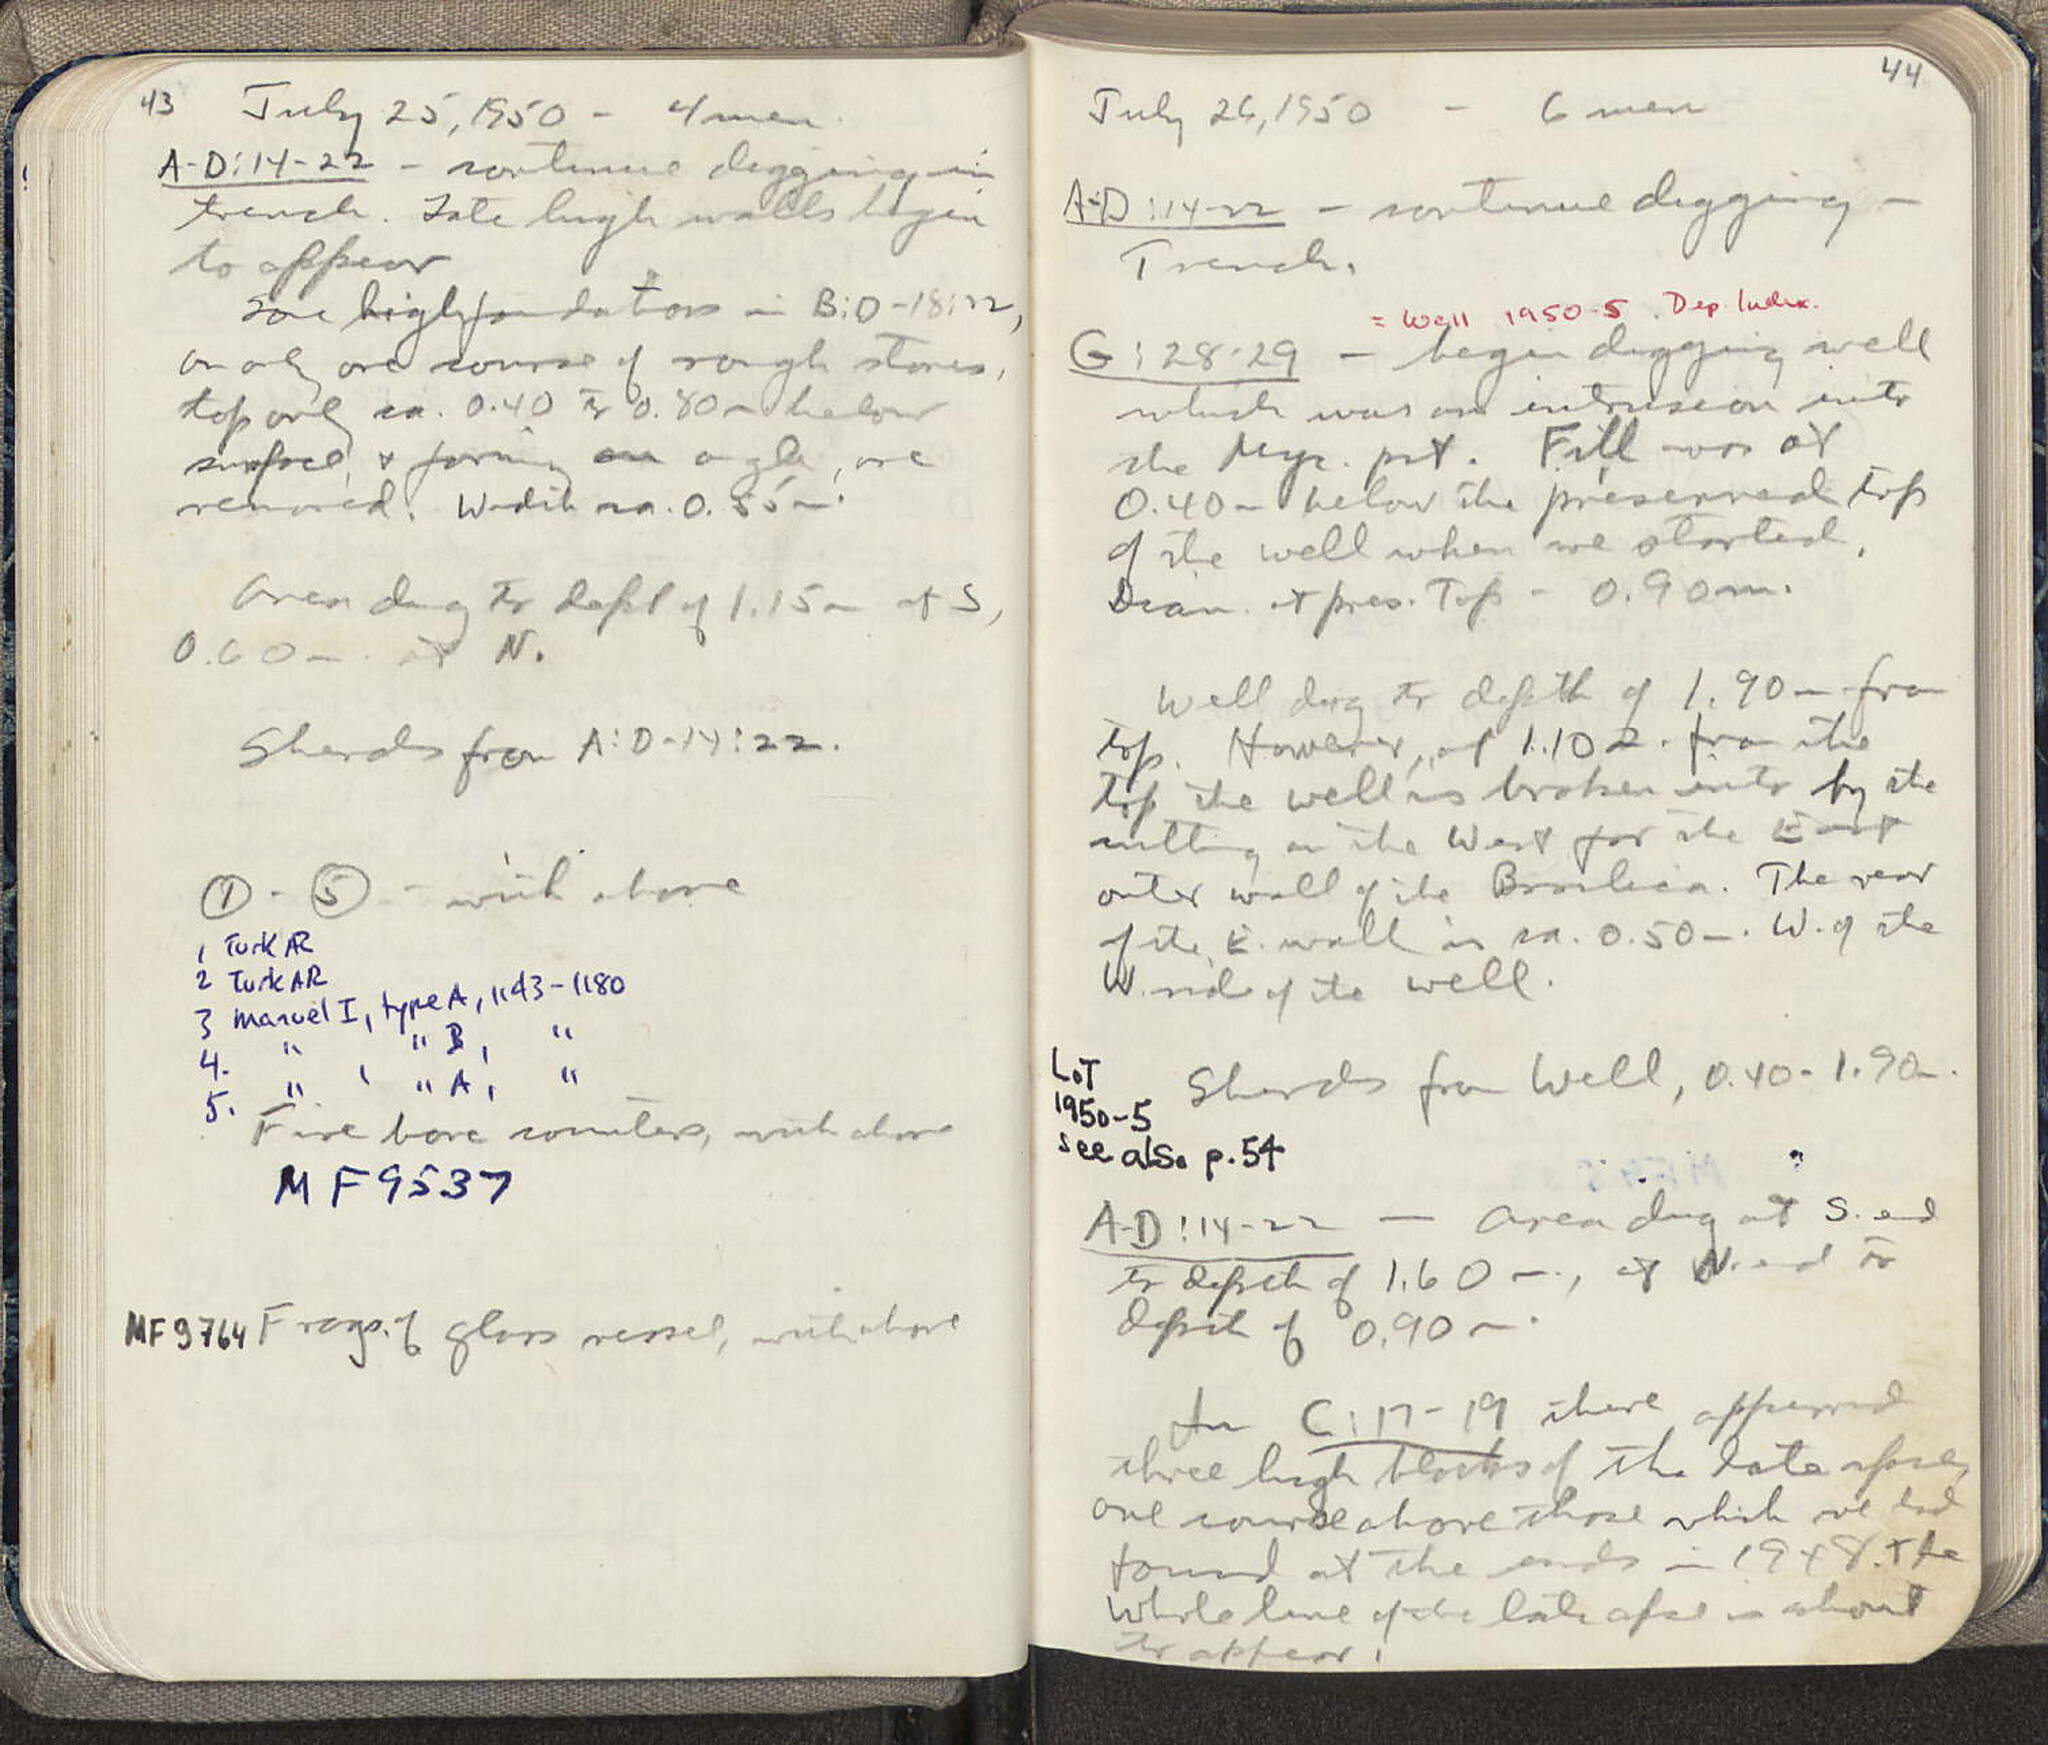 43 July 25, 1950 - 4 men.
A-D:14-22 - continue digging in
trench. Late high walls begin
to appear
Some high foundations in B:D-18:22,
on only one course of rough stones,
top only ca. 0.40 to 0.80m below
surface, & forming an angle, are
removed. Width ca. 0.55m.
Area dug to depth of 1.15m at S,
0.60m. at N.
Sherds from A:D-14:22.
① - ⑤ - with above
1 Turk AR
2 Turk AR
3 Manuel I, type A, 1143-1180
4. " " B, "
5. " " A, "
Five bone counters, with above
MF 9537
MF 9764 Frags. of glass vessel, with above
44
July 26, 1950 - 6 men
A-D:14-22 - continue digging -
Trench.
= Well 1950-5. Dep. Index.
G:28-29 - begin digging well
which was an intrusion into
the Myc. pit. Fill was at
0.40m below the preserved top
of the well when we started.
Diam. at pres. Top - 0.90m.
Well dug to depth of 1.90m from
top. However, at 1.10m. from the
top the well is broken into by the
cutting on the West for the East
outer wall of the Basilica. The rear
of the E. wall is ca. 0.50m. W. of the
W. side of the well.
Lot
1950-5
see also p. 54
Sherds from Well, 0.40-1.90m.
A-D:14-22 - Area dug at S. end
to depth of 1.60m., at N. end to
depth of 0.90m.
In C:17-19 there appeared
three high blocks of the late apse,
one course above those which we had
found at the ends in 1948. The
whole line of the late apse is about
to appear.